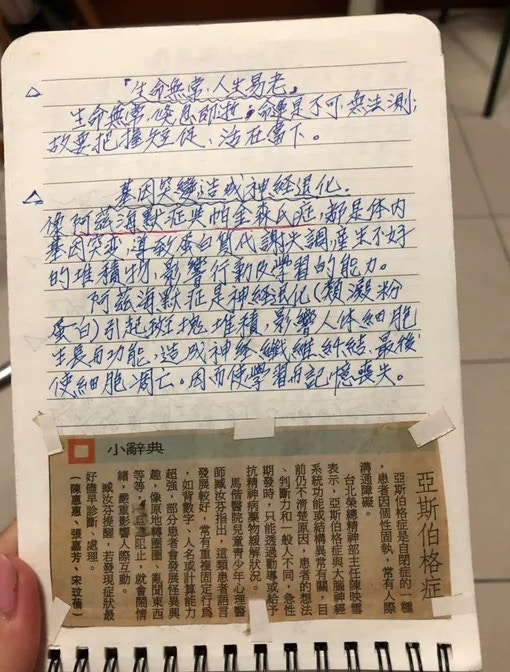 △ 「生命無常，人生易老」
生命無常，倏忽即逝，命運是不可、無法測；
故要把握短促、活在當下。
△ 基因突變造成神經退化.
像阿茲海默症與帕金森氏症，都是体内
基因突变，導致蛋白質代謝失調，產生不好
的堆積物，影響行動及學習的能力。
阿茲海默症是神經退化(類澱粉
蛋白)引起斑塊堆積，影響人体細胞
生長与功能，造成神经纖維糾結，最後
使細胞凋亡。因而使學習与記憶喪失。
小辭典
亞斯伯格症
亞斯伯格症是自閉症的一種
，患者因個性固執，常有人際
溝通障礙。
台北榮總精神部主任陳映雪
表示，亞斯伯格症與大腦神經
系統功能或結構異常有關，目
前仍不清楚原因，患者的想法
、判斷力和一般人不同，急性
期發時，只能透過勸導或給予
抗精神病藥物緩解狀況。
馬偕醫院兒童青少年心理醫
師臧汝芬指出，這類患者語言
發展較好，常有重複固定行為
，如背數字、人名或計算能力
超強，部分患者會發展怪異興
趣，像原地轉圈圈、亂聞東西
等等，阻止，就會鬧情
緒，嚴重影響人際互動。
臧汝芬提醒，若發現症狀最
好儘早診斷、處理。
（陳惠惠、張嘉芳、宋玟蒨）